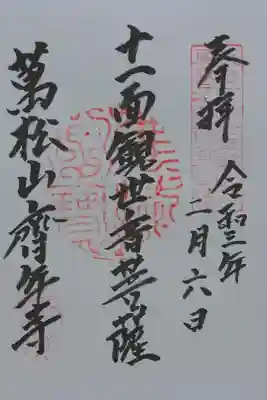 奉拝
令和三年
二月六日
十一面観世音菩薩
萬松山齊年寺